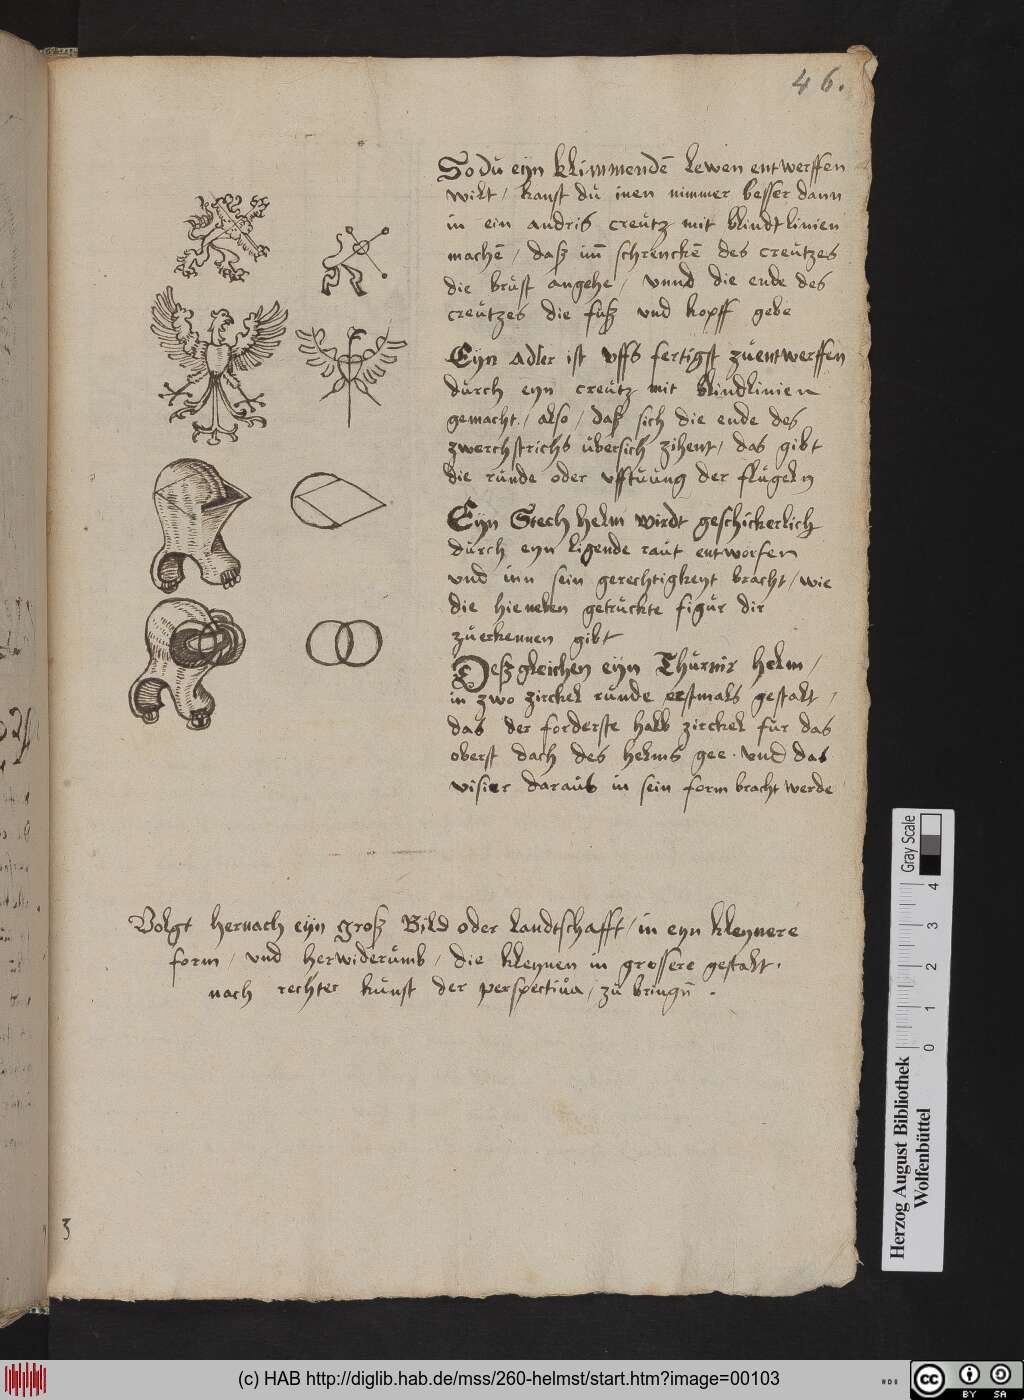 46.
So du eyn klimmendē lewen entwerffen
wilt / kanst du inen nimmer besser dann
in ein andris creutz mit blindtlinien
machē / dasz im̄ schrenckē des creutzes
die brust angehe / vnnd die ende des
creutzes die fusz vnd kopff gebe
Eyn adler ist vffs fertigst zuentwerffen
durch eyn creutz mit blindlinien
gemacht / also / dasz sich die ende des
zwerchstrichs übersich zihent / das gibt
die runde oder vffthuung der flugeln
Eyn Stech helm wirdt geschickerlich
durch eyn ligende raut entworfen
vnd inn sein gerechtigkeyt bracht / wie
die hieneben getruckte figur dir
zuerkennen gibt
Deszgleichen eyn Thurnir helm /
in zwo zirckel runde erstmals gestalt /
das der forderste halb zirckel fur das
oberst dach des helms gee. vnd das
visier daraus in sein form bracht werde
Volgt hernach eyn grosz Bild oder landtschafft / in eyn kleynere
form / vnd herwiderumb / die kleynen in grossere gestalt.
nach rechter kunst der perspectiua / zu bringē.
3
Gray Scale
0 1 2 3 4
Herzog August Bibliothek
Wolfenbüttel
(c) HAB http://diglib.hab.de/mss/260-helmst/start.htm?image=00103
cc BY SA